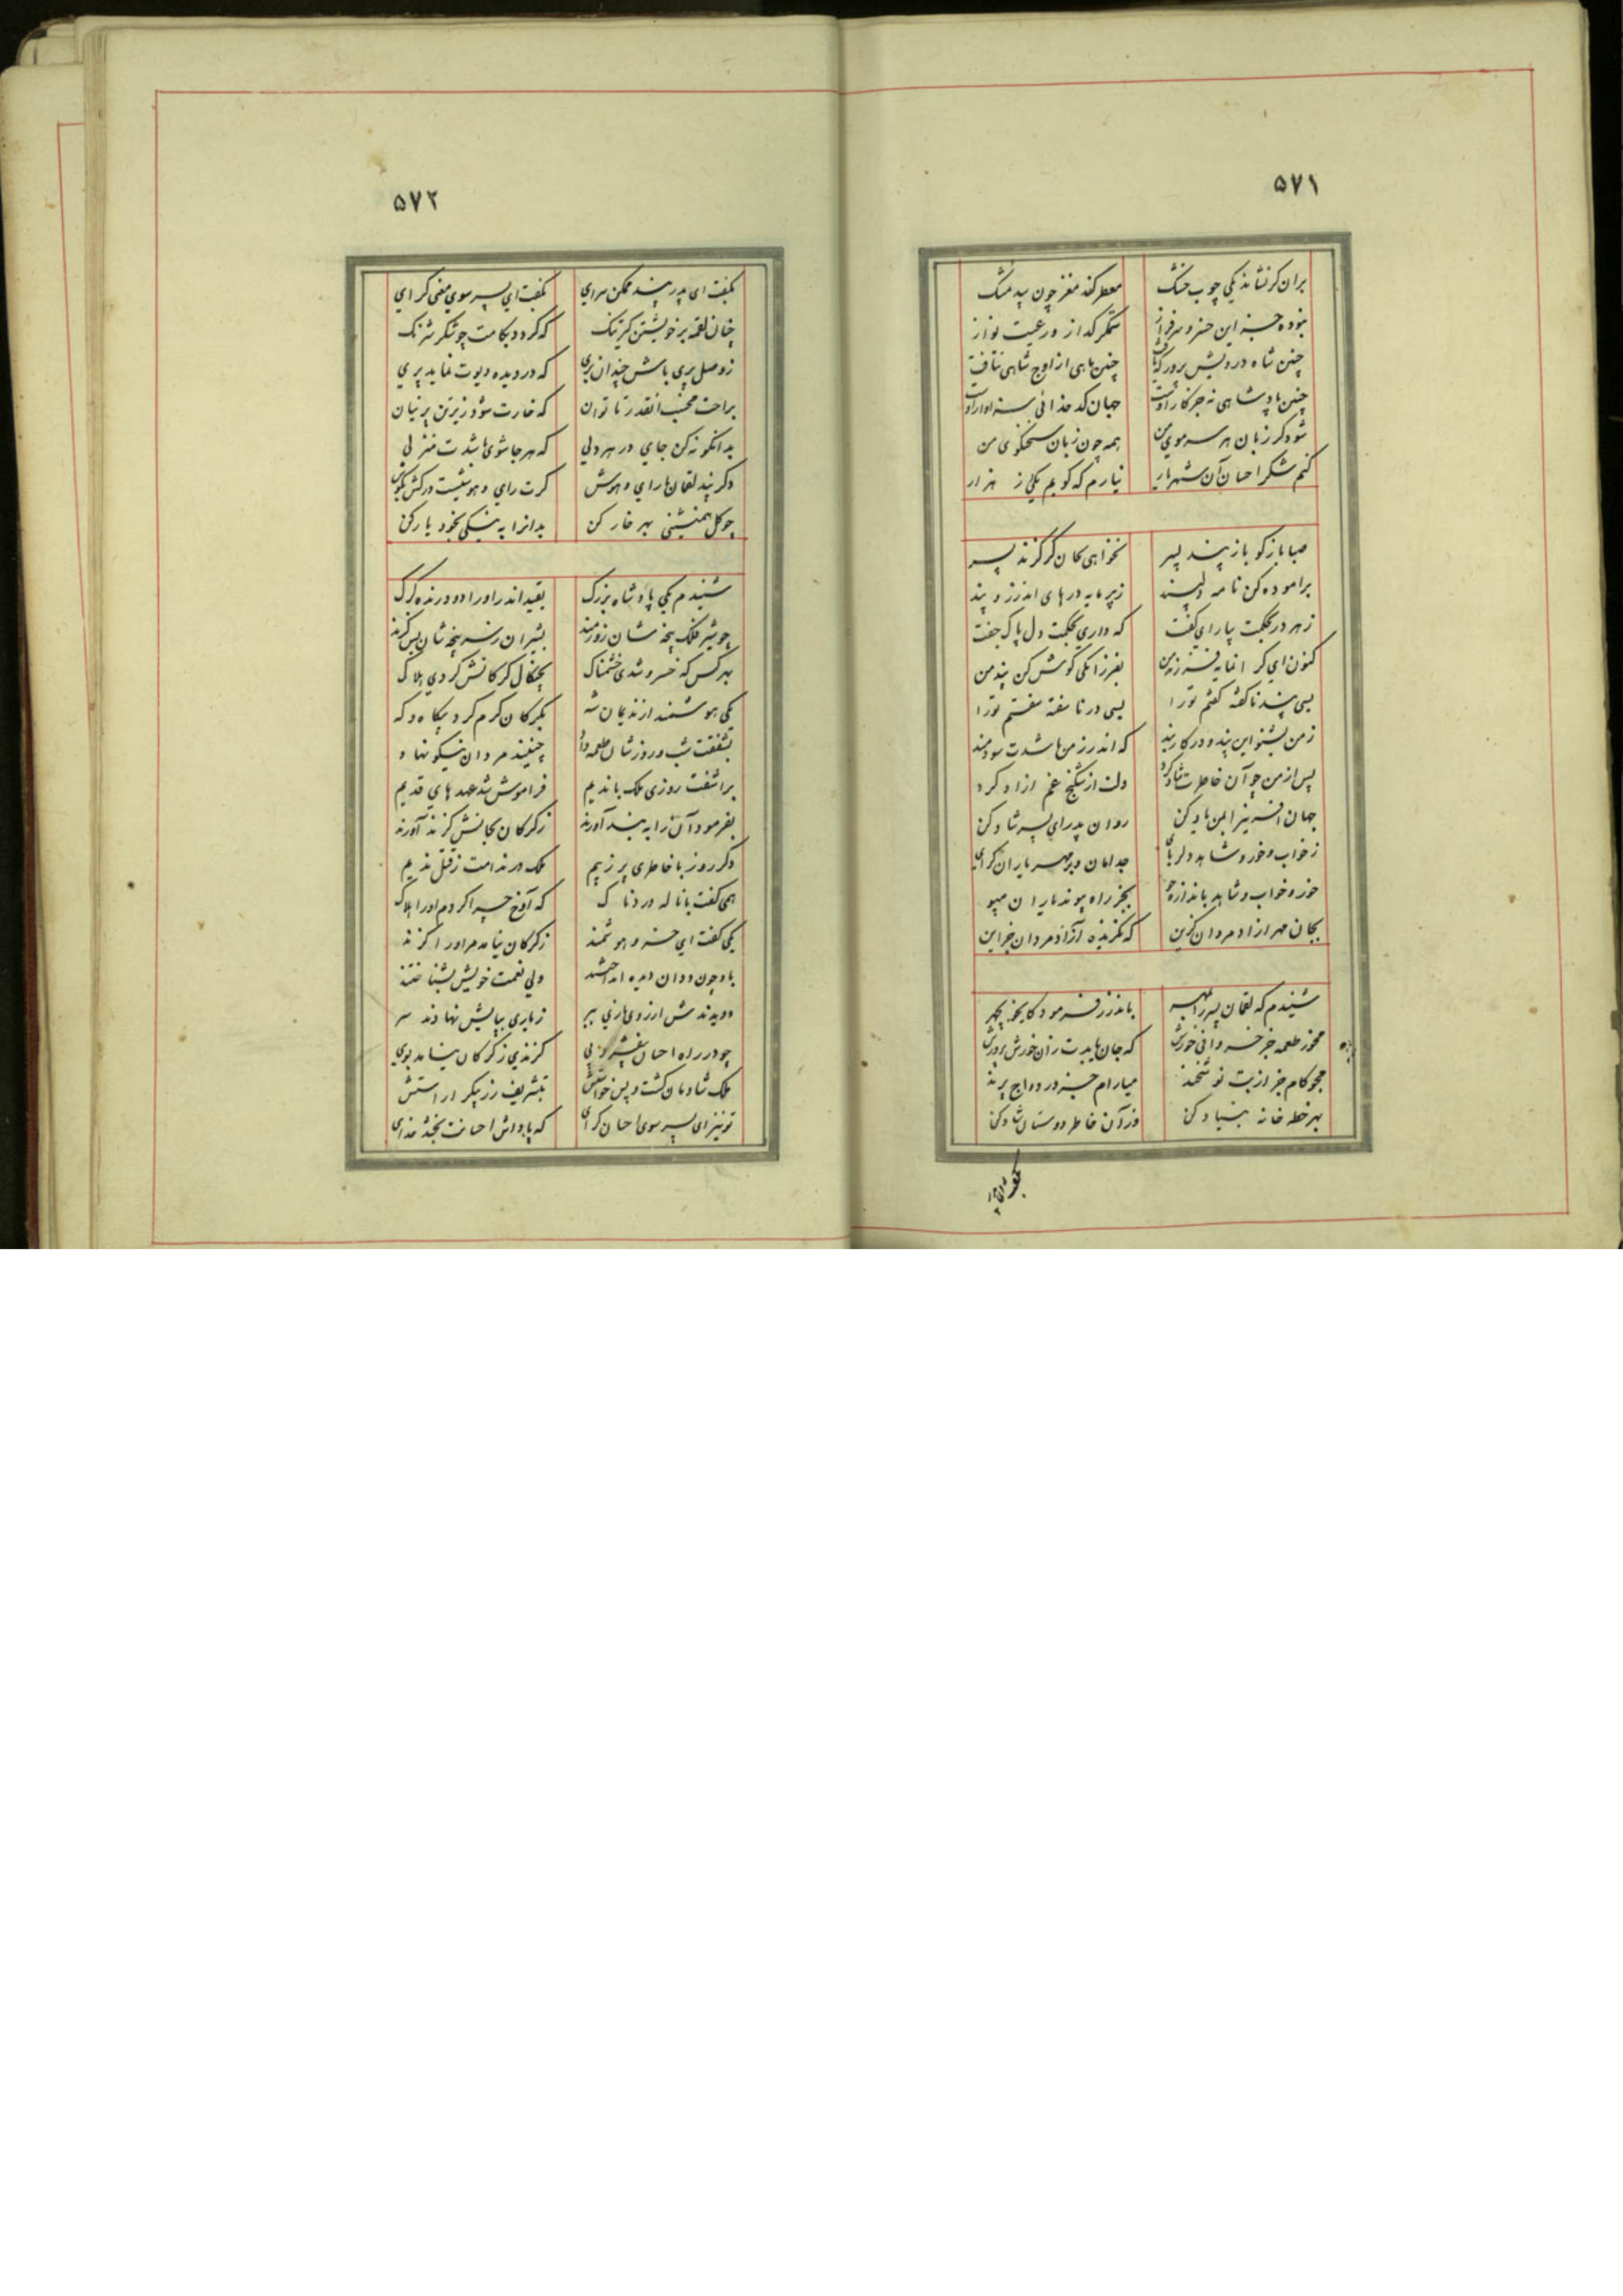 ۵۷۱
بران کر نشاند یکی چوب خشک معطر کند مغز چون بید مشک
نبوده جز این خسرو سرفراز ستمگر گداز و رعیت نواز
چنین شاه درویش پرور که یافت چنین ماهی از اوج شاهی نتافت
چنین پادشاهی نه جز کار اوست جهان کدخدائی سزاوار اوست
شود گر زبان هر سر موی من همه چون زبان سخنگوی من
کنم شکر احسان آن شهریار نیارم که گویم یکی از هزار
صبا بازگو باز پند پسر نخواهی کان گر گزند پسر
برآموده کن نامه دلپسند زپرمایه درهای اندرز و پند
زهر در بحکمت بیارای گفت که داری بحکمت دل پاک جفت
کنون ای گرانمایه فرزند من بفرزانگی گوش کن پند من
بسی پند ناگفته گفتم تورا بسی در ناسفته سفتم تورا
زمن بشنو این پند و در کار بند که اندرز من باشدت سودمند
پس از من چو آن خاطرت شاد کرد دلت از شکنج غم ازاد کرد
جهان آفرین را بمن یاد کن روان پدر ای پسر شاد کن
زخواب و خور و شاهد دلربای جدا مان و بر مهر یاران گرای
خور و خواب و شاهد باندازه جو بجز راه پیوند یاران مپو
بجان مهر ازاد مردان گزین که نگزیده آزاد مردان جز این
شنیدم که لقمان پسر را بمهر باندرز فرمود کای خوبچهر
مخور طعمه جز خسروانی خورش که جان یابدت زان خورش پرورش
مجو کام جز از بت نوشخند میارام جز در دواج پرند
بهر خطه خانه بنیاد کن وزآن خاطر دوستان شاد کن
بگفت ای پدر
۵۷۲
بگفت ای پدر پند ممکن سرای بگفت ای پسر سوی معنی گرای
چنان لقمه بر خویشتن گیر تنک که گردد بکامت چو شکر شرنک
زوصل پری باش چندان بری که در دیده دیوت نماید پری
براحت مخسب آنقدر تا توان که خارت شود زیر تن پرنیان
بدانگونه کن جای در هر دلی که هر جا شوی باشدت منزلی
دگر پند لقمان با رای و هوش گرت رای و هوشیست درکش بگوش
چو گل همنشینی بهر خار کن بدانرا به نیکی بخود یار کن
شنیدم یکی پادشاه بزرگ بقید اندر اورا دو درنده گرگ
چو شیر فلک پنجه شان زورمند بشیران زسرپنجه شان بس گزند
بهر کس که خسرو شدی خشمناک بچنگال گرگانش کردی هلاک
یکی هوشمند از ندیمان شه بگرگان کرم کرد بیگاه و گه
بشفقت شب و روز شان طعمه داد چنینند مردان نیکو نهاد
براشفت روزی ملک با ندیم فراموش شد عهدهای قدیم
بفرمود آن را به بند آورند زگرگان بجانش گزند آورند
دگر روز با خاطری پر زبیم ملک در ندامت زقتل ندیم
همی گفت با ناله دردناک که آوخ چرا کردم اورا هلاک
یکی گفت ای خسرو هوشمند زگرگان نیامد مر اورا گزند
باو چون ددان دیده انداختند ولی نعمت خویش بشناختند
دویدندش از روی یاری ببر زیاری بپایش نهادند سر
چو در راه احسان بیفشرد پی گزندی زگرگان نیامد بوی
ملک شادمان گشت و پس خواستش بتشریف زر پیکر اراستش
تو نیز ای پسر سوی احسان گرای که پاداش احسانت بخشد خدای